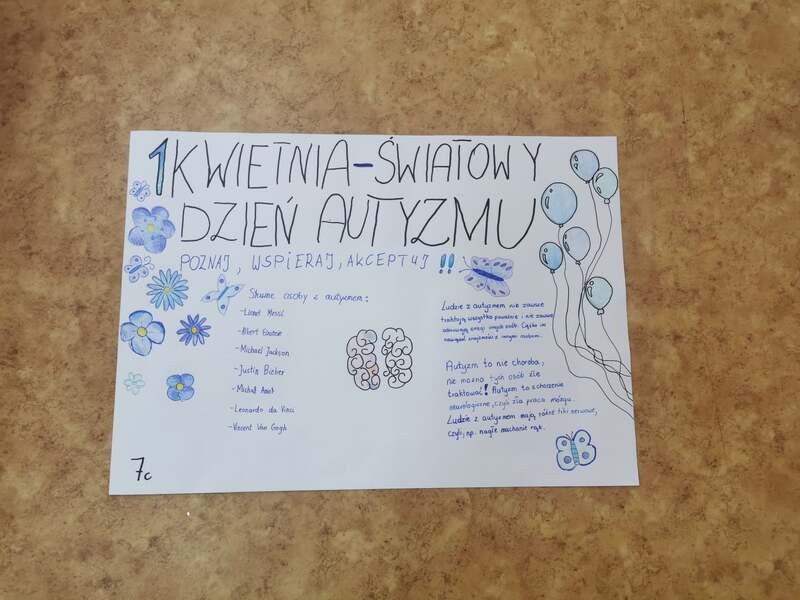 1 KWIETNIA-ŚWIATOWY
DZIEŃ AUTYZMU
POZNAJ, WSPIERAJ, AKCEPTUJ !!
Sławne osoby z autyzmem:
-Lionel Messi
-Albert Einstein
-Michael Jackson
-Justin Bieber
-Michał Anioł
-Leonardo da Vinci
-Vincent Van Gogh
Ludzie z autyzmem nie zawsze
traktują wszystko poważnie i nie zawsze
odwzajemniają emocje innych osób. Ciężko im
nawiązać znajomości z innymi osobami.
Autyzm to nie choroba,
nie można tych osób źle
traktować! Autyzm to schorzenie
neurologiczne, czyli zła praca mózgu.
Ludzie z autyzmem mają różne tiki nerwowe,
czyli, np. nagłe machanie rąk.
7c